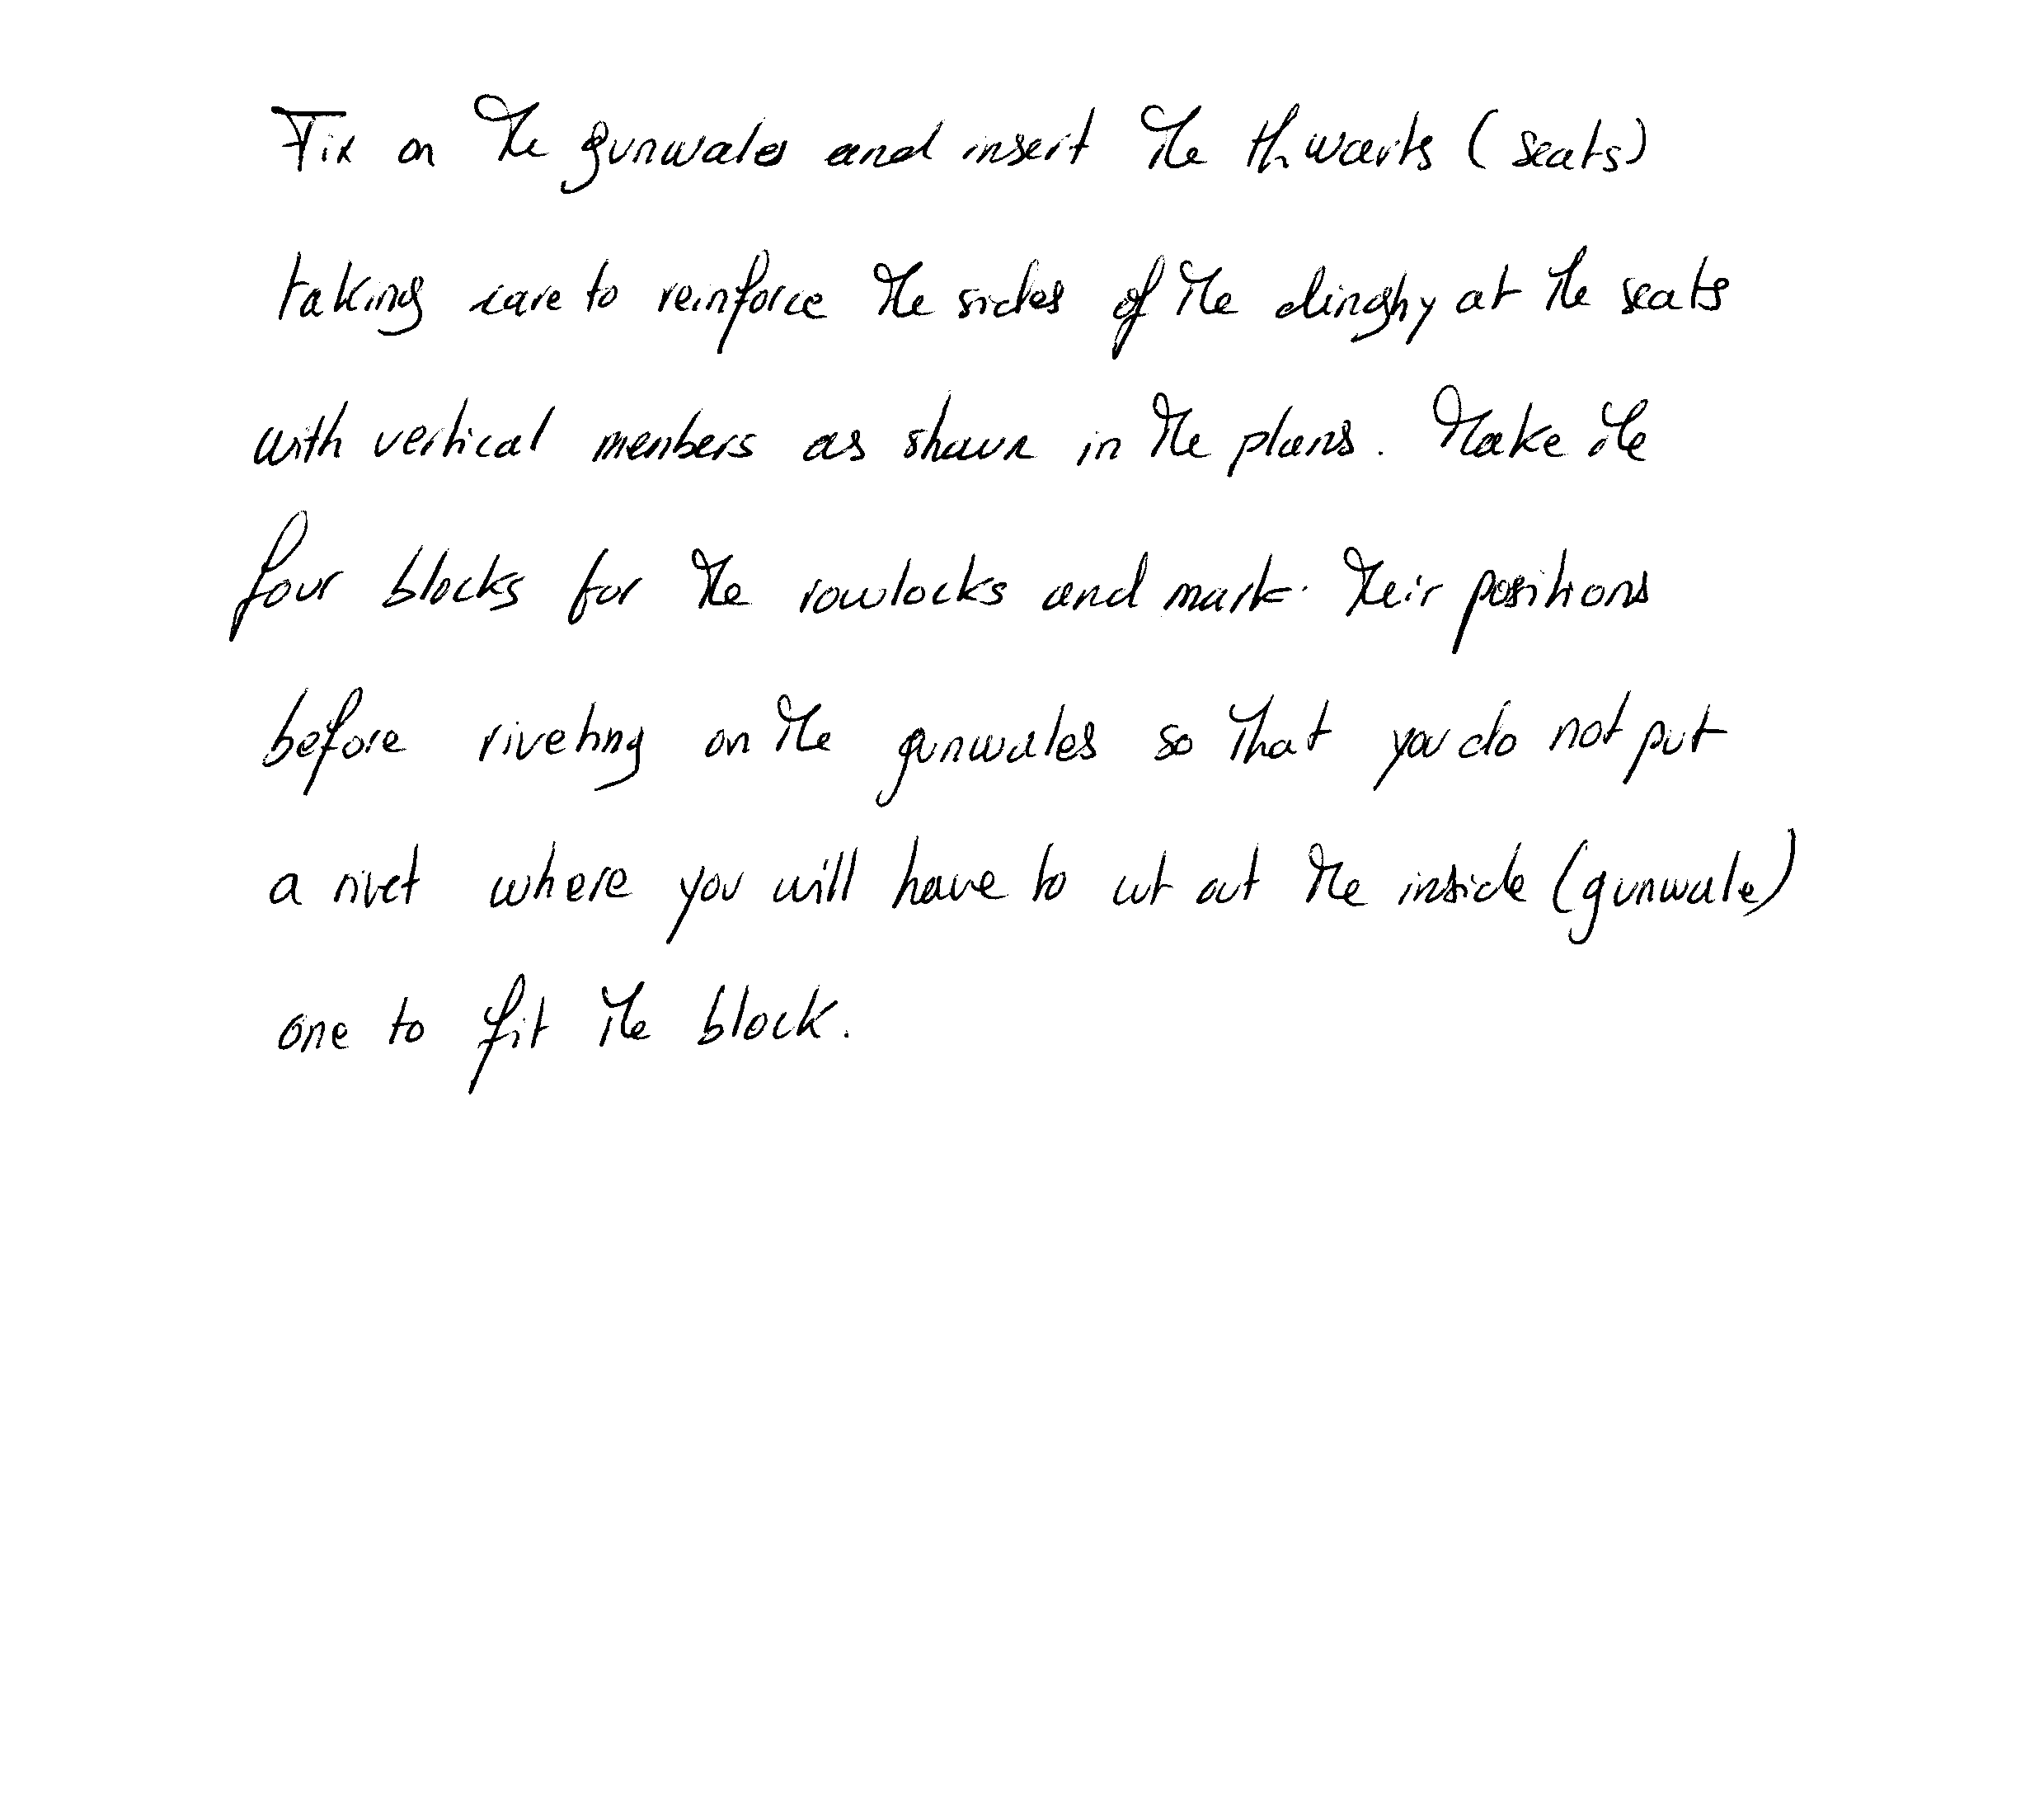 Fix on the gunwales and insert the thwarts (seats)
taking care to reinforce the sides of the dinghy at the seats
with vertical members as shown in the plans. Make the
four blocks for the rowlocks and mark their positions
before riveting on the gunwales so that you do not put
a rivet where you will have to cut out the inside (gunwale)
one to fit the block.